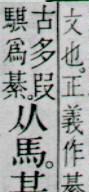 文也。正義作綦
古多叚
騏爲綦。
从馬。其